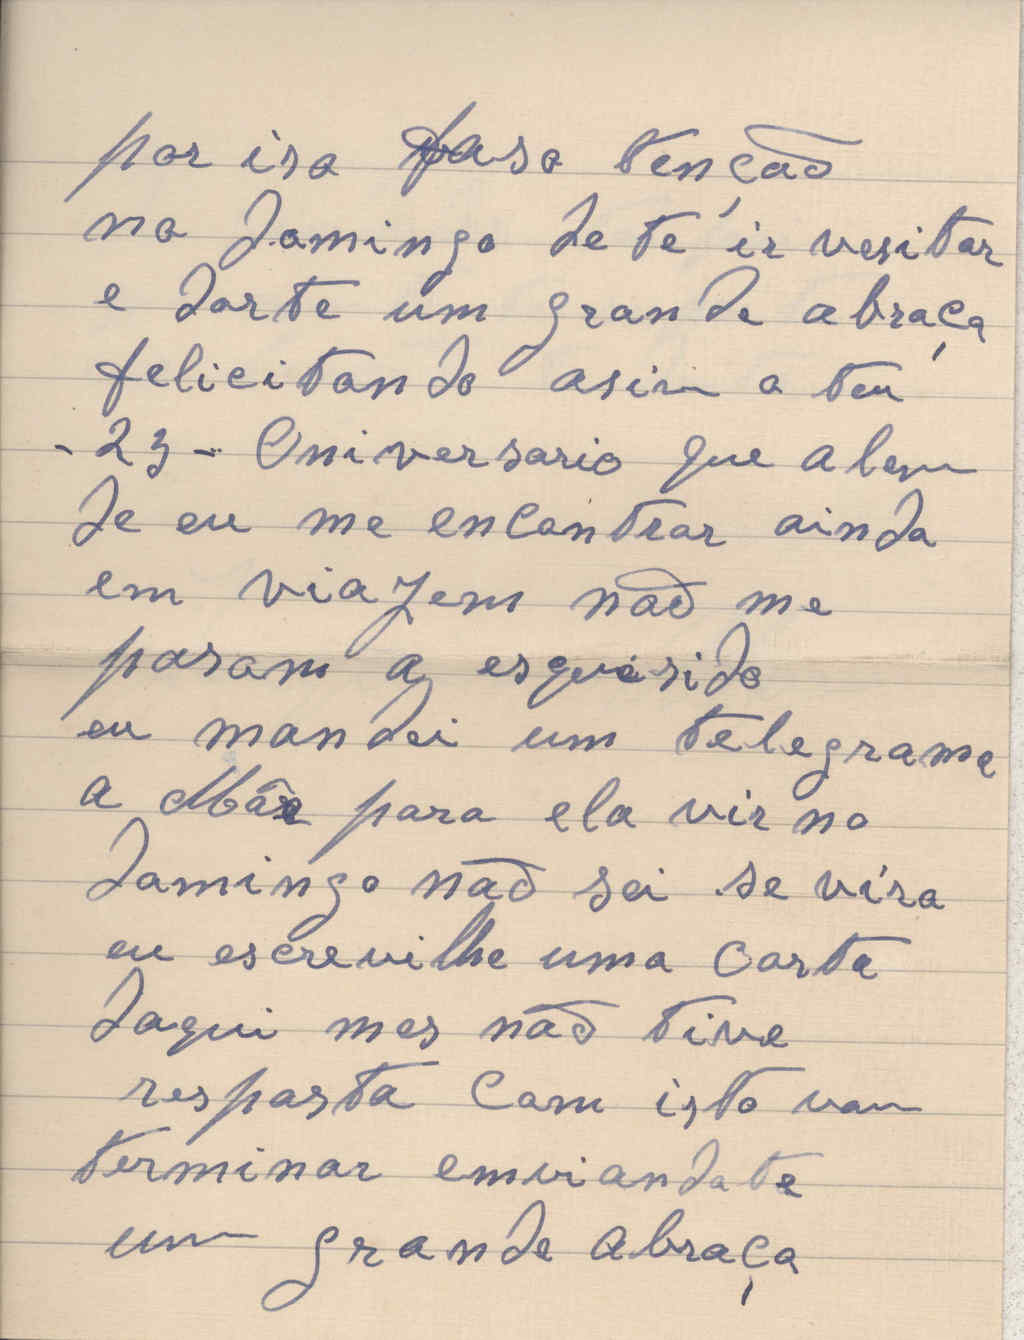 por iso faso tenção
no Domingo de te ir vesitar
e darte um grande abraço
felicitando asim o teu
-23- Aniversario que alem
de eu me encontrar ainda
em viagem não me
pasam a esquesido
eu mandei um telegrama
a Mãe para ela vir no
Domingo não sei se víra
eu escrevilhe uma carta
daqui mes não tive
resposta Com isto vou
terminar emviandote
um grande abraço